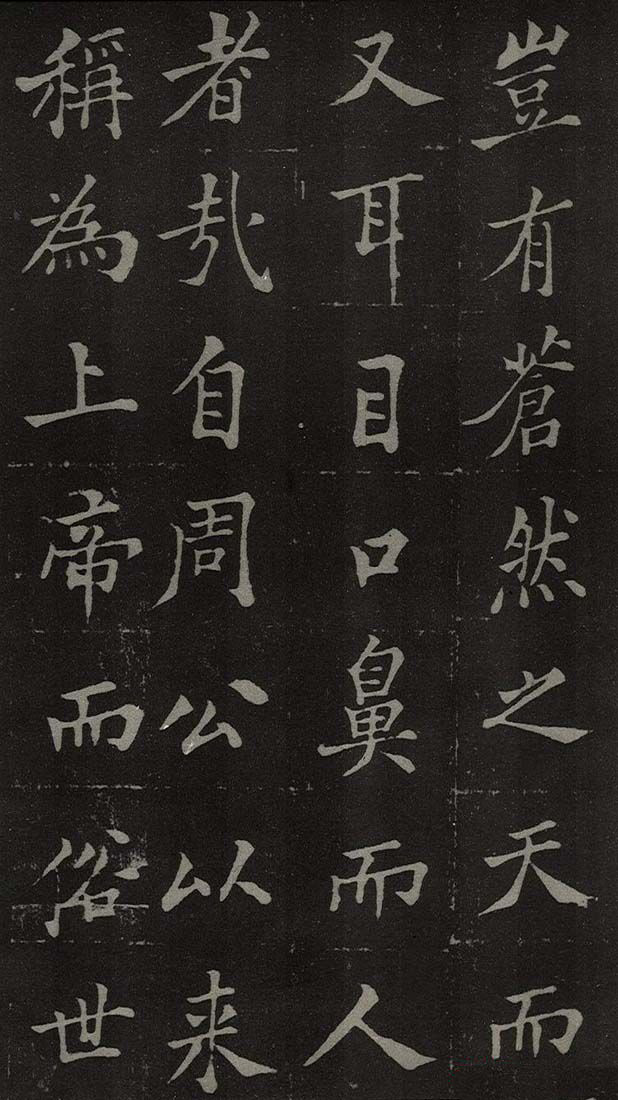 豈有蒼然之天而
又耳目口鼻而人
者㢤自周公以来
稱為上帝而俗世